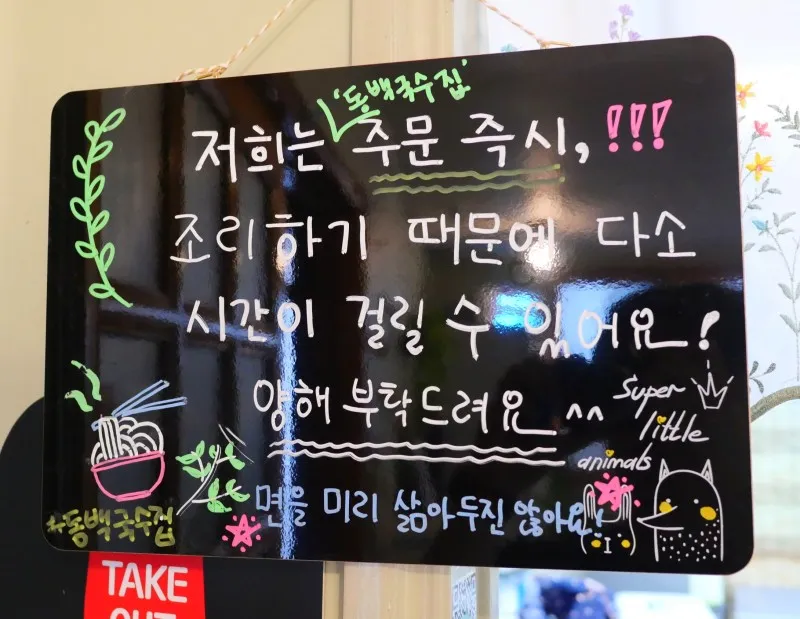 '동백국수집'
저희는 주문 즉시, !!!
조리하기 때문에 다소
시간이 걸릴 수 있어요!
양해 부탁드려요 ^^
Super
little
animals
면을 미리 삶아두진 않아요!
#동백국수집
TAKE
OUT